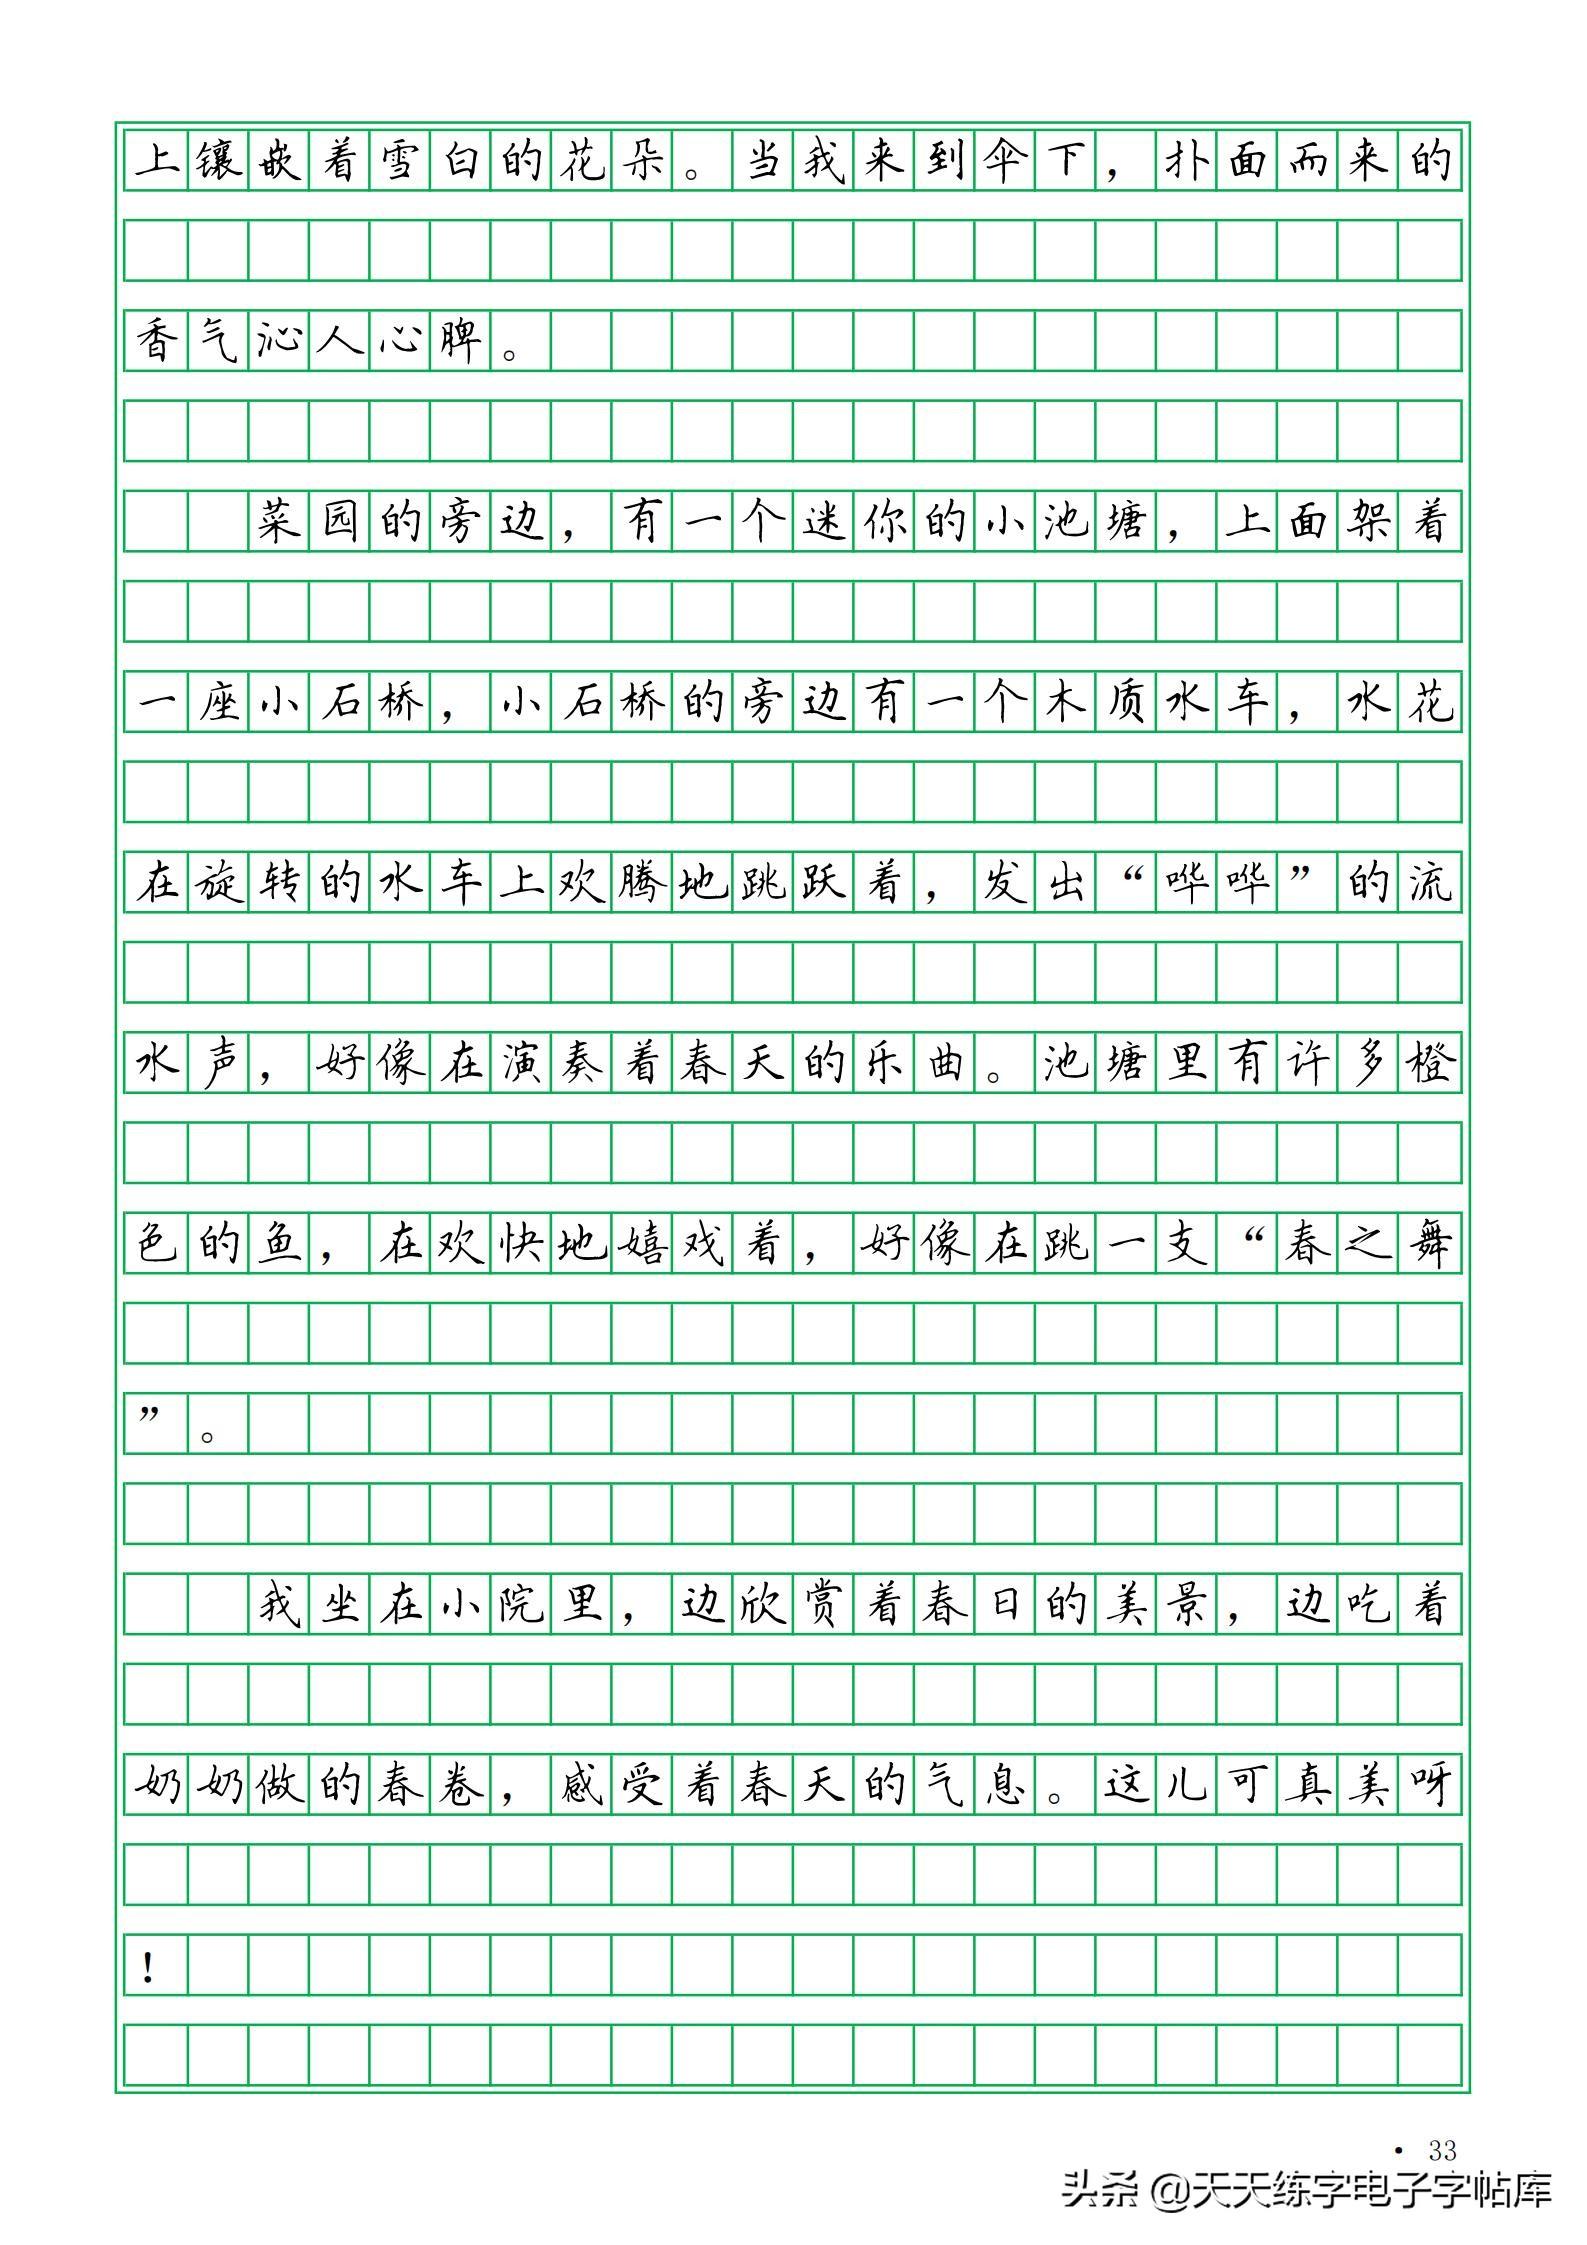 上镶嵌着雪白的花朵。当我来到伞下，扑面而来的
香气沁人心脾。
菜园的旁边，有一个迷你的小池塘，上面架着
一座小石桥，小石桥的旁边有一个木质水车，水花
在旋转的水车上欢腾地跳跃着，发出“哗哗”的流
水声，好像在演奏着春天的乐曲。池塘里有许多橙
色的鱼，在欢快地嬉戏着，好像在跳一支“春之舞
”。
我坐在小院里，边欣赏着春日的美景，边吃着
奶奶做的春卷，感受着春天的气息。这儿可真美呀
！
· 33
头条 @天天练字电子字帖库